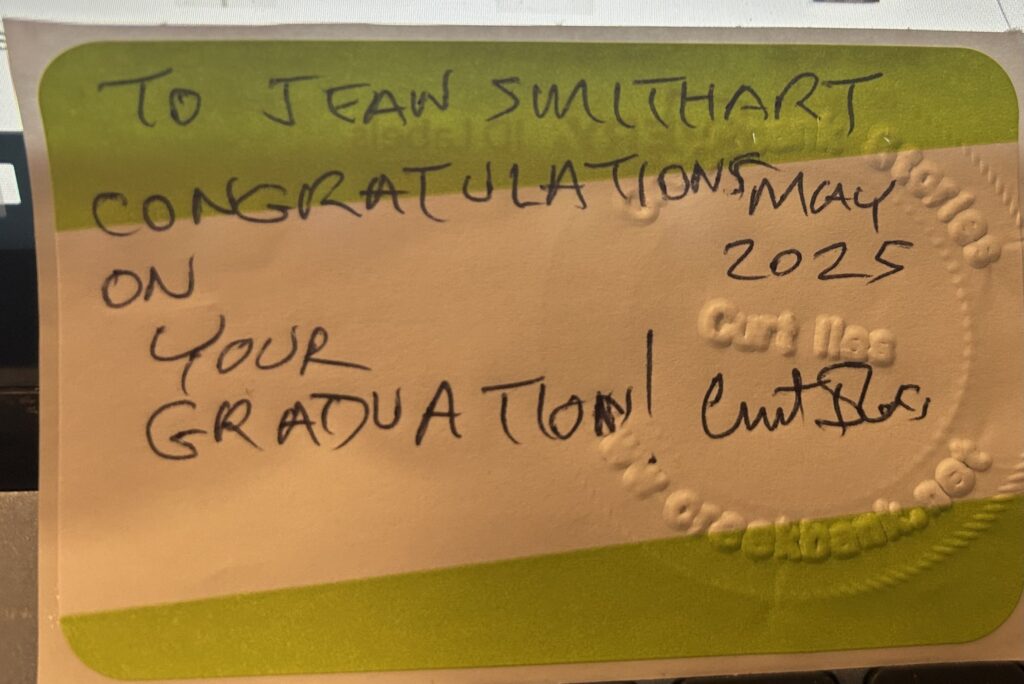 TO JEAN SMITHART
CONGRATULATIONS MAY
ON 2025
YOUR
GRADUATION! Curt Iles
stories
Curt Iles
www.creekbank.net
ID Labels